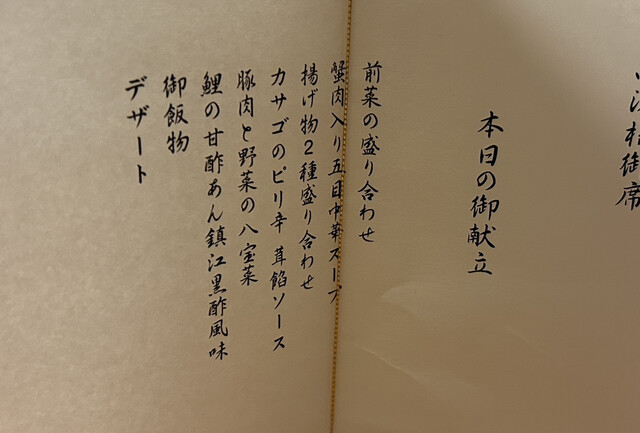 本日の御献立
前菜の盛り合わせ
蟹肉入り五目中華スープ
揚げ物2種盛り合わせ
カサゴのピリ辛 茸餡ソース
豚肉と野菜の八宝菜
鯉の甘酢あん鎮江黒酢風味
御飯物
デザート